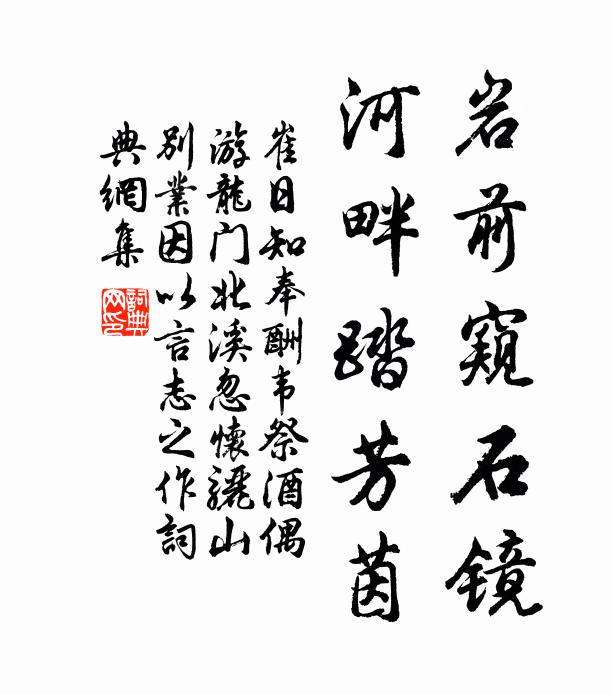 岩前窥石镜
河畔踏芳茵
崔日知奉酬韦祭酒偶
游龙门北溪忽懷骊山
别業因以言志之作詞
典網集
詞典
网印